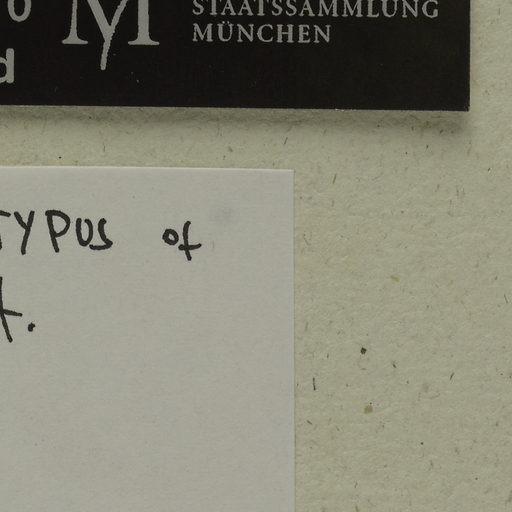 0 M STAATSSAMMLUNG
MÜNCHEN
d
TYPUS of
t.